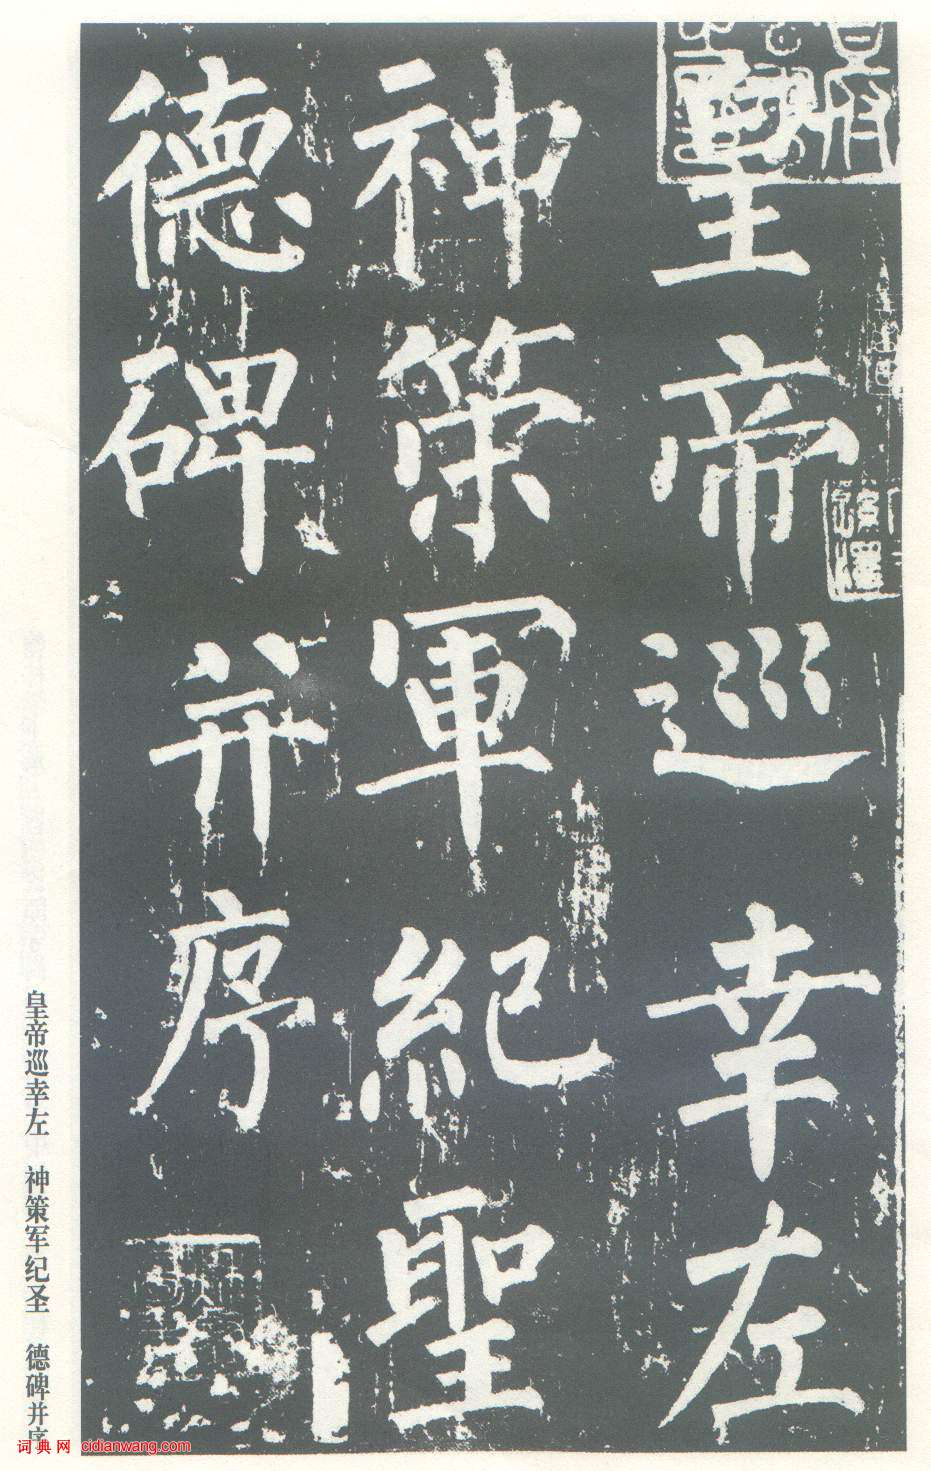 皇帝巡幸左
神策軍紀聖
德碑并序
皇帝巡幸左 神策军纪圣 德碑并序
词典网 cidianwang.com